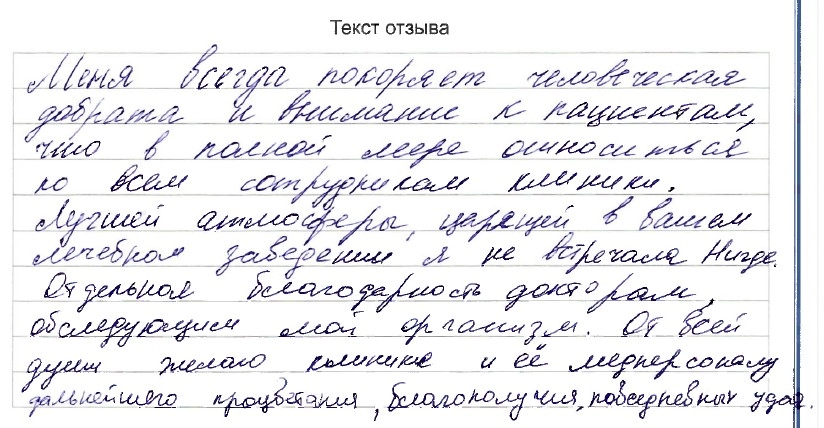 Текст отзыва
Меня всегда покоряет человеческая
добрата и внимание к пациентам,
что в полной мере относиться
ко всем сотрудникам клиники.
Лучшей атмосферы, царящей в вашем
лечебном заведении я не встречала Нигде.
Отдельная благодарность докторам,
обследующим мой организм. От всей
души желаю клинике и её медперсоналу
дальнейшего процветания, благополучия, повседневных удач.